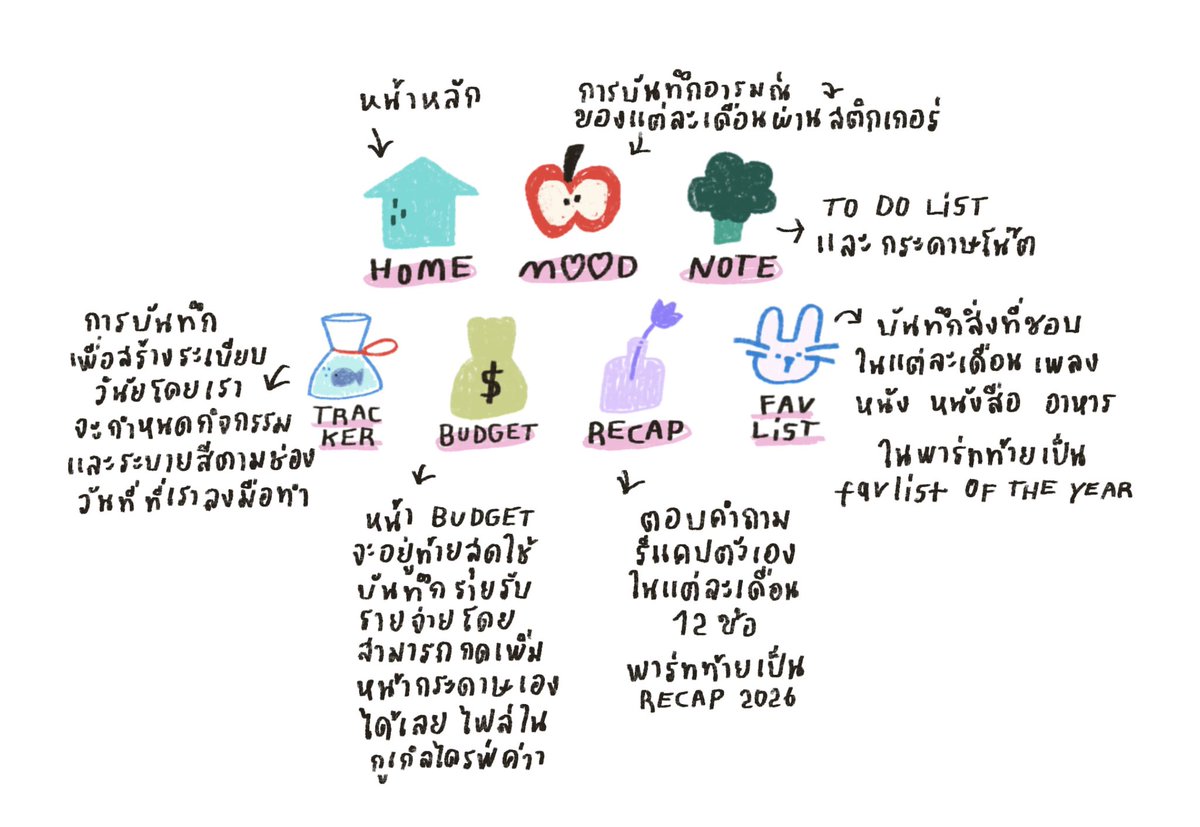 หน้าหลัก
การบันทึกอารมณ์
ของแต่ละเดือนผ่านสติกเกอร์
HOME
MOOD
NOTE
TO DO LIST
และกระดาษโน๊ต
การบันทึก
เพื่อสร้างระเบียบ
วินัยโดยเรา
จะกำหนดกิจกรรม
และระบายสีตามช่อง
วันที่ ที่เราลงมือทำ
TRAC
KER
BUDGET
RECAP
FAV
LIST
บันทึกสิ่งที่ชอบ
ในแต่ละเดือน เพลง
หนัง หนังสือ อาหาร
ในพาร์ทท้ายเป็น
favlist OF THE YEAR
หน้า BUDGET
จะอยู่ท้ายสุดใช้
บันทึกรายรับ
รายจ่ายโดย
สามารถกดเพิ่ม
หน้ากระดาษเอง
ได้เลย ไฟล์ใน
กูเกิลไดรฟ์ค่าา
ตอบคำถาม
รีแคปตัวเอง
ในแต่ละเดือน
12 ข้อ
พาร์ทท้ายเป็น
RECAP 2026